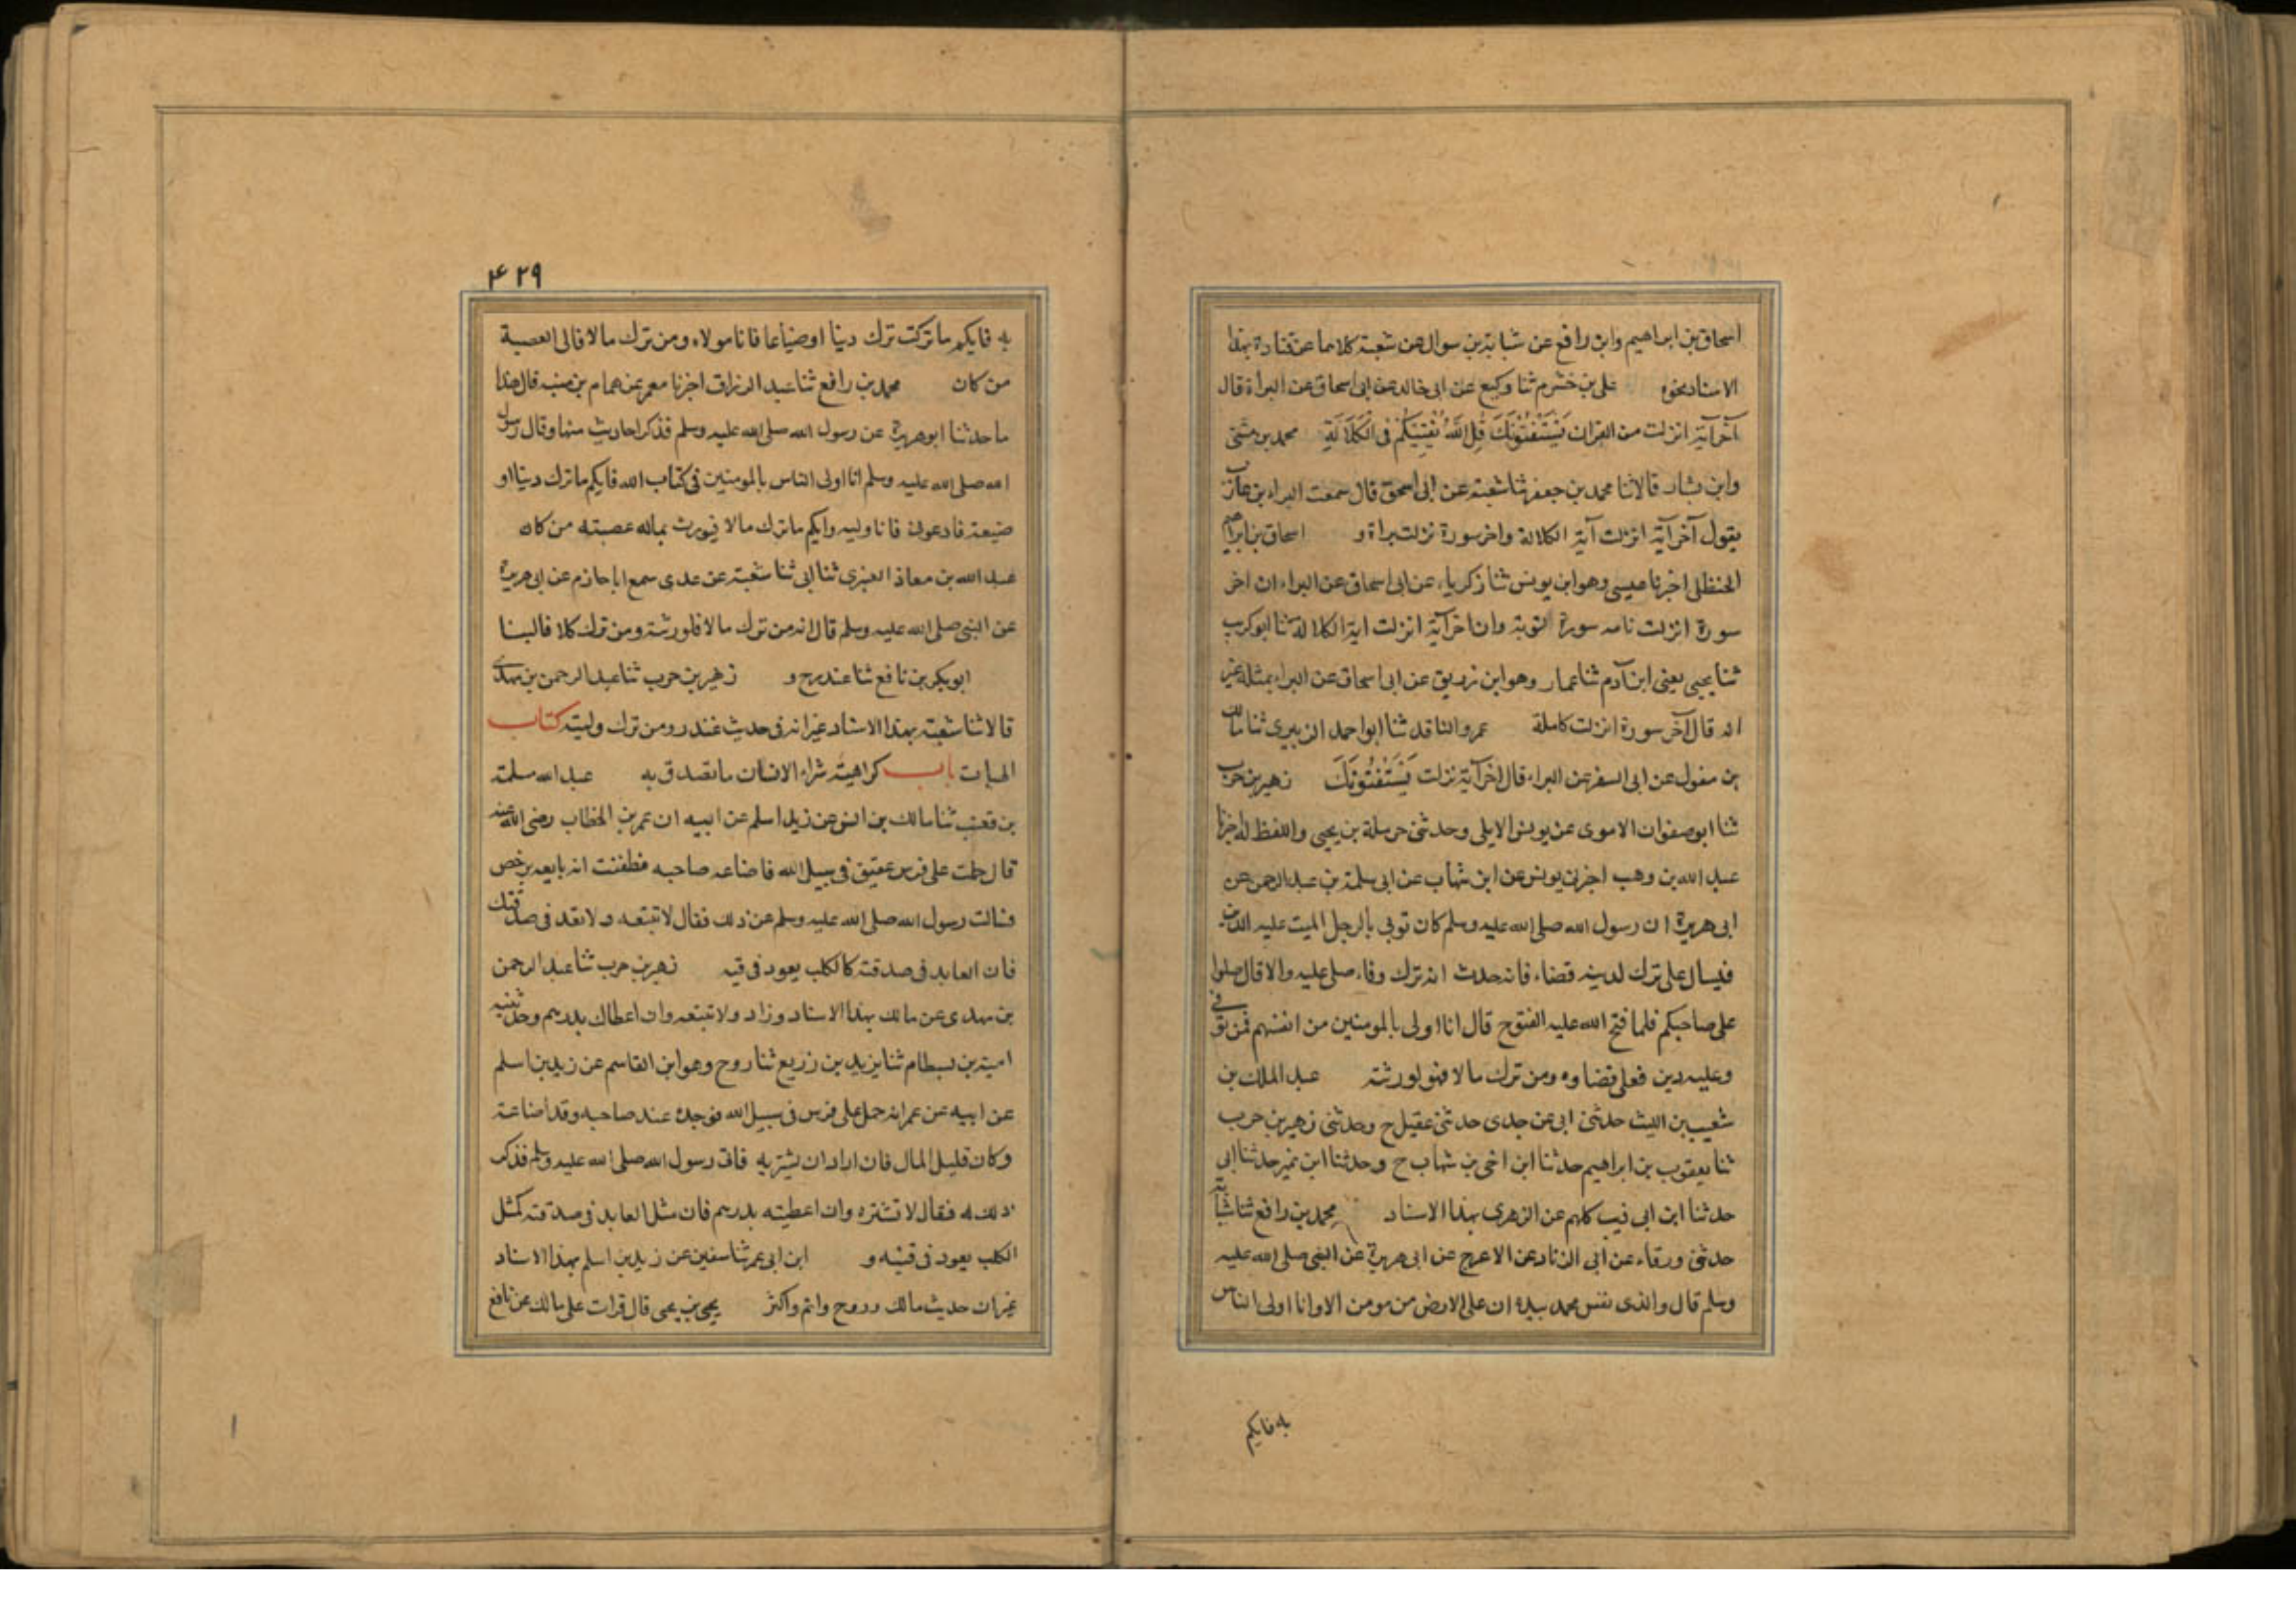 اسحاق بن ابراهيم وابن رافع عن شبابة بن سوار عن شعبة كلاهما عن قتادة بهذا
الاسناد نحوه علي بن خشرم ثنا وكيع عن ابى خالد عن ابى اسحاق عن البراء قال
آخر آية انزلت من القران يَسْتَفْتُونَكَ قُلِ اللَّهُ يُفْتِيكُمْ فِى الْكَلَالَةِ محمد بن مثنى
وابن بشار قالا ثنا محمد بن جعفر ثنا شعبة عن ابى اسحق قال سمعت البراء بن عازب
يقول آخر آية انزلت آية الكلالة واخر سورة نزلت براة و اسحاق بن ابراهيم
الحنظلى اخبرنا عيسى وهو ابن يونس ثنا زكرياء عن ابى اسحاق عن البراء ان اخر
سورة انزلت تامه سورة التوبة وان اخر آية انزلت اية الكلالة ثنا ابو كريب
ثنا يحيى يعنى ابن آدم ثنا عمار وهو ابن زريق عن ابى اسحاق عن البراء بمثله غير
انه قال آخر سورة انزلت كاملة عمرو الناقد ثنا ابو احمد الزبيرى ثنا مالك
بن مغول عن ابى السفر عن البراء قال اخر آية نزلت يَسْتَفْتُونَكَ زهير بن حرب
ثنا ابو صفوان الاموى عن يونس الايلى وحدثنى حرملة بن يحيى واللفظ له اخبرنا
عبد الله بن وهب اخبرنى يونس عن ابن شهاب عن ابى سلمة بن عبد الرحمن عن
ابى هريرة ان رسول الله صلى الله عليه وسلم كان توبى بالرجل الميت عليه الدين
فيسال على ترك لدينه قضاء فانه حدث انه ترك وفاء صلى عليه والا قال صلوا
على صاحبكم فلما فتح الله عليه الفتوح قال انا اولى بالمومنين من انفسهم فمن توفى
وعليه دين فعلى قضاوه ومن ترك مالا فهو لورثته عبد الملك بن
شعيب بن الليث حدثنى ابى عن جدى حدثنى عقيل ح وحدثنى زهير بن حرب
ثنا يعقوب بن ابراهيم حدثنا ابن اخى بن شهاب ح وحدثنا ابن نمير حدثنا ابى
حدثنا ابن ابى ذيب كلهم عن الزهرى بهذا الاسناد محمد بن رافع ثنا شبابة
حدثنى ورقاء عن ابى الزناد عن الاعرج عن ابى هريرة عن النبى صلى الله عليه
وسلم قال والذى نفس محمد بيده ان على الارض من مومن الا وانا اولى الناس
به فايكم
۴۲۹
به فايكم ما تركت ترك دينا او ضياعا فانا مولاه ومن ترك مالا فالى العصبة
من كان محمد بن رافع ثنا عبد الرزاق اخبرنا معمر عن همام بن منبه قال هذا
ما حدثنا ابو هريرة عن رسول الله صلى الله عليه وسلم فذكر احاديث منها وقال رسول
الله صلى الله عليه وسلم انا اولى الناس بالمومنين فى كتاب الله فايكم ما ترك دينا او
ضيعة فادعونى فانا وليه وايكم ما ترك مالا فيورث بماله عصبته من كان
عبد الله بن معاذ العنبرى ثنا ابى ثنا شعبة عن عدى سمع ابا حازم عن ابى هريرة
عن النبى صلى الله عليه وسلم قال انه من ترك مالا فلورثته ومن ترك كلا فالينا
ابو بكر بن نافع ثنا غندر ح و زهير بن حرب ثنا عبد الرحمن بن مهدى
قالا ثنا شعبة بهذا الاسناد غير انه فى حديث غندر ومن ترك وليته كتاب
الهبات باب كراهية شراء الانسان ما تصدق به عبد الله مسلمة
بن قعنب ثنا مالك بن انس عن زيد اسلم عن ابيه ان عمر بن الخطاب رضى الله عنه
قال حملت على فرس عتيق فى سبيل الله فاضاعه صاحبه فظننت انه بايعه برخص
فسالت رسول الله صلى الله عليه وسلم عن ذلك فقال لا تبتعه ولا تعد فى صدقتك
فان العايد فى صدقته كالكلب يعود فى قيه زهير بن حرب ثنا عبد الرحمن
بن مهدى عن مالك بهذا الاسناد وزاد ولا تبتعه وان اعطاك بدرهم وحدثنيه
امية بن بسطام ثنا يزيد بن زريع ثنا روح وهو ابن القاسم عن زيد بن اسلم
عن ابيه عن عمر انه حمل على فرس فى سبيل الله فوجده عند صاحبه وقد اضاعة
وكان قليل المال فان اراد ان يشتريه فاتى رسول الله صلى الله عليه وسلم فذكر
ذلك له فقال لا تشتره وان اعطيته بدرهم فان مثل العايد فى صدقته كمثل
الكلب يعود فى قيئه و ابن ابى عمر ثنا سفين عن زيد بن اسلم بهذا الاسناد
غير ان حديث مالك وروح واتم واكثر يحيى بن يحيى قال قرات على مالك عن نافع